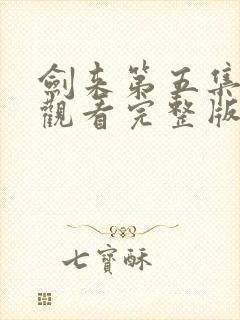 劍来第五集
觀看完整版
七寶酥